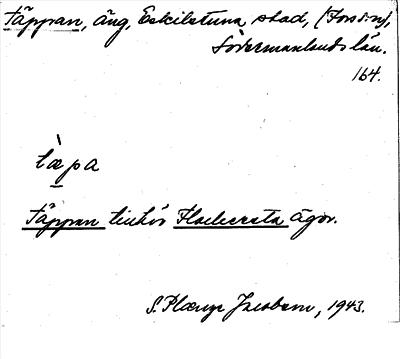 Täppan, äng, Eskilstuna stad, (Fors sn),
Södermanlands län.
164.
tæ̀pa
Täppan tillhör ägor.
S. Jacobsson, 1943.